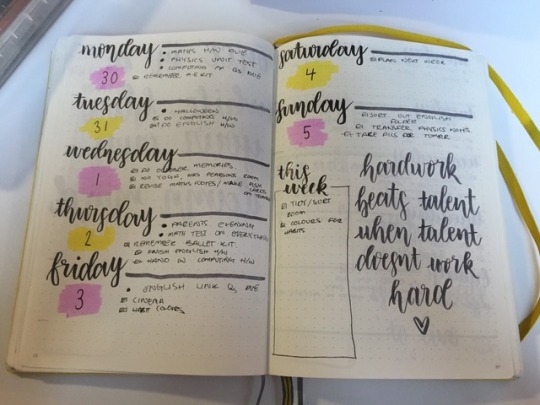 monday
30
MATHS H/W DUE
PHYSICS UNIT TEST
COMPUTING Qs DUE
REMEMBER KIT
tuesday
31
HALLOWEEN
DO COMPUTING H/W
DO ENGLISH H/W
wednesday
1
DO MEMORIES
DO READING
REVISE MATHS NOTES/ MAKE
thursday
2
PARENTS EVENING
MATHS TEST ON EVERYTHING
REMEMBER BALLET KIT
FINISH ENGLISH H/W
HAND IN COMPUTING H/W
friday
3
ENGLISH LINK Q DUE
CINEMA
saturday
4
PLAN NEXT WEEK
sunday
5
SORT OUT ENGLISH
FOLDER
TRANSFER PHYSICS NOTES
TAKE PICS FOR
this
week
TIDY/SORT
ROOM
COLOURS FOR
HABITS
hardwork
beats talent
when talent
doesnt work
hard